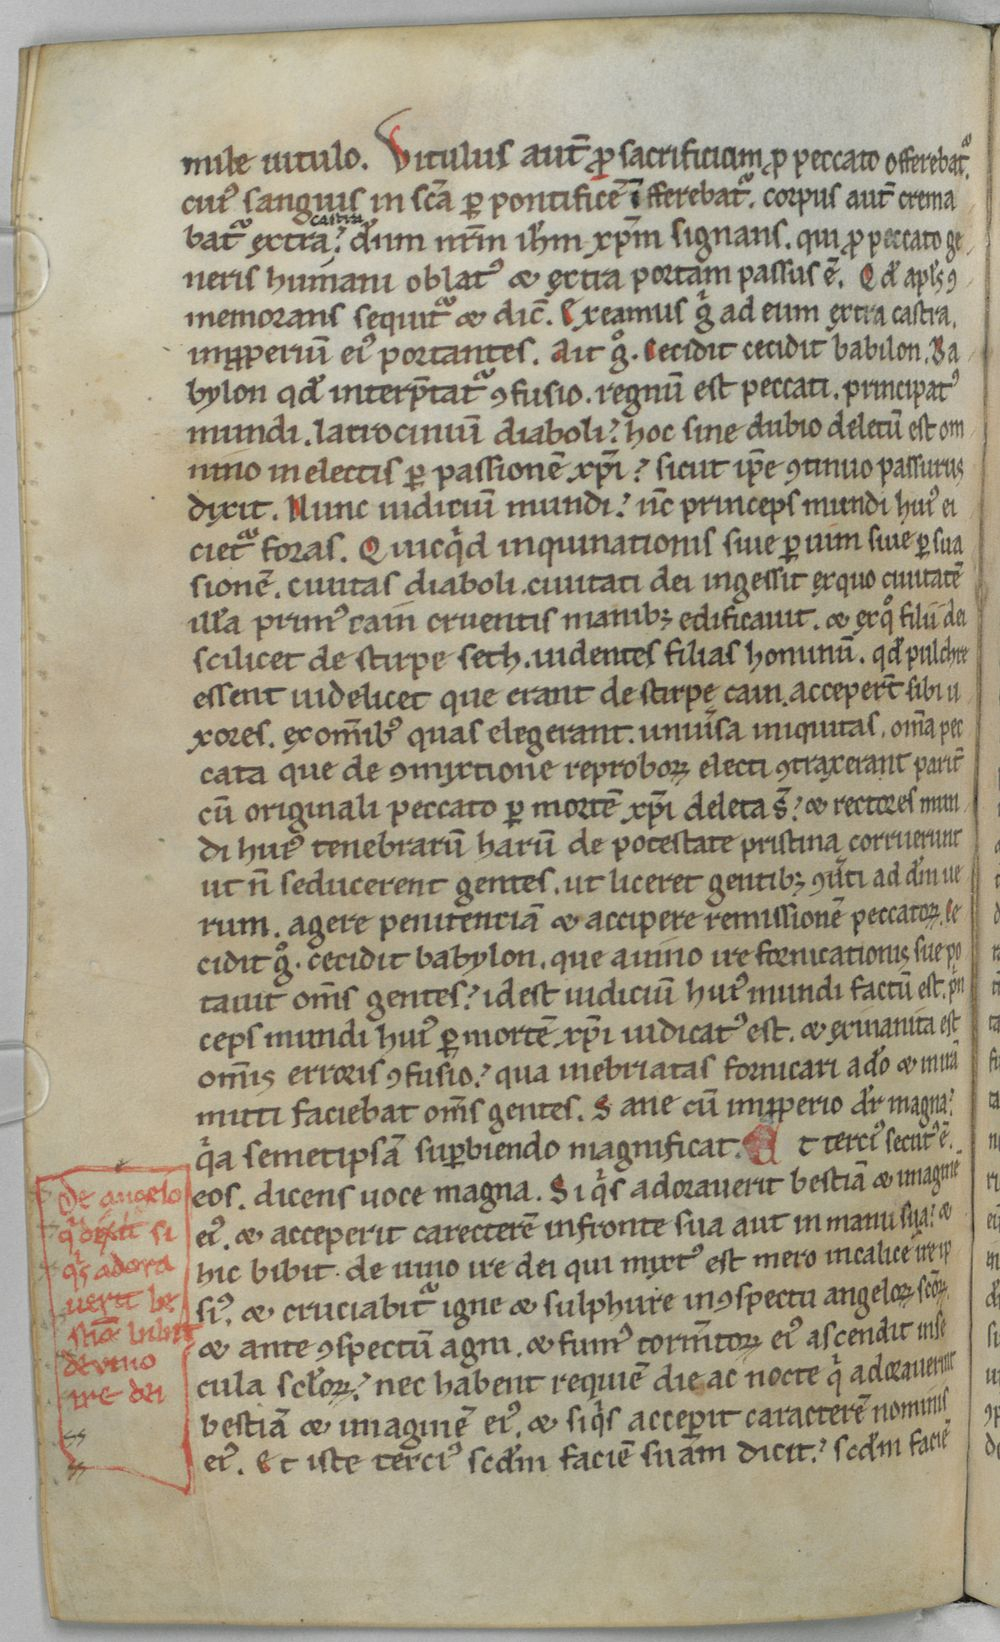 mile uitulo. Vitulus aut̄ ꝓ sacrificium ꝓ peccato offerebat᷑.
cuiꝰ sanguis in sc̄a ꝑ pontificē īfferebat᷑. corpus aut̄ crema
bat᷑ extra castra? dn̄m nr̄m ih̄m xp̄m signans. qui ꝓ peccato ge
neris humani oblatꝰ & extra portam passus ē. Qd̄ apl̄s ꝯ
memorans sequit᷑ & dic̄. Exeamus gͥ ad eum extra castra.
inꝓperiū eiꝰ portantes. Ait gͦ. Cecidit cecidit babilon. Ba
bylon qd̄ interp̄tat᷑ ꝯfusio. regnū est peccati. principatꝰ
mundi. latrociniū diaboli? hoc sine dubio deletū est om
nino in electis ꝑ passionē xp̄i? sicut ip̄e ꝯtinuo passurus
dixit. Nunc iudiciū mundi? nc̄ princeps mundi huiꝰ ei
ciet᷑ foras. Quicqͥd inquinationis siue ꝑ uim siue ꝑ sua
sionē. ciuitas diaboli. ciuitati dei ingessit ex quo ciuitatē
illā primꝰ cain cruentis manibꝫ edificauit. & ex qͦ filii dei
scilicet de stirpe seth. uidentes filias hominū. qd̄ pulchre
essent uidelicet que erant de stirpe cain. acceper̄t sibi u
xores. ex om̄ibꝰ quas elegerant. uniu͛sa iniquitas. om̄a pec
cata que de ꝯmyxtione reproboꝝ electi ꝯtraxerant parit͛
cū originali peccato ꝑ mortē xp̄i deleta s̄? & rectores mun
di huiꝰ tenebrarū harū de potestate pristina corruerunt
ut n̄ seducerent gentes. ut liceret gentibꝫ ꝯu͛ti ad dm̄ ue
rum. agere penitenciā & accipere remissionē peccatoꝝ. Ce
cidit gͦ. cecidit babylon. que a uino ire fornicationis sue po
tauit om̄s gentes? id est iudiciū huiꝰ mundi factū est. pͥn
ceps mundi huiꝰ ꝑ mortē xp̄i iudicatꝰ est. & exinanita est
om̄is erroris ꝯfusio? qua inebriatas fornicari a do & inirā
mitti faciebat om̄s gentes. Sane cū inꝓperio dr̄ magna?
qͥa semetipsā suꝑbiendo magnificat. Et terciꝰ secutꝰ ē.
eos. dicens uoce magna. Si qͥs adorauerit bestiā & imaginē
eiꝰ. & acceperit carecterē in fronte sua aut in manu sua? &
hic bibit. de uino ire dei qui mixtꝰ est mero in calice ire ip
siꝰ. & cruciabit᷑ igne & sulphure in ꝯspectu angeloꝝ sc̄oꝝ.
& ante ꝯspectū agni. & fumꝰ torm̄toꝝ eiꝰ ascendit in se
cula scl̄oꝝ? nec habent requiē die ac nocte qͥ adorauerunt
bestiā & imaginē eiꝰ. & si qͥs acceꝑit caracterē nominis
eiꝰ. Et iste terciꝰ scd̄m faciē suam dicit? scd̄m faciē
De angelo
qͥ dixit si
qͥs adora
uerit be
stiā bibit
de vino
ire dei